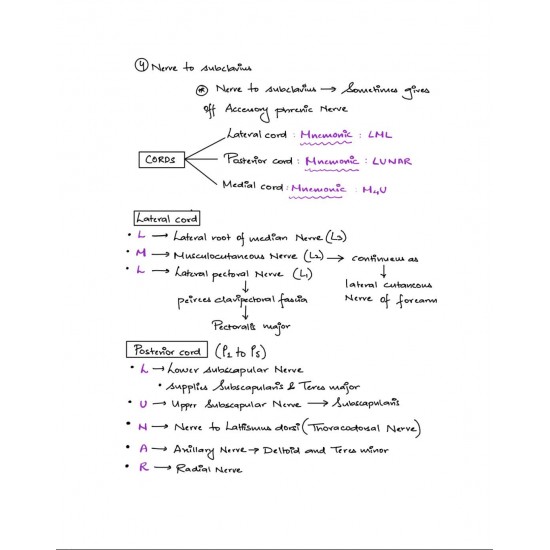 ④ Nerve to subclavius
⊛ Nerve to subclavius → Sometimes gives
off Accessory phrenic Nerve
CORDS
Lateral cord : Mnemonic : LML
Posterior cord : Mnemonic : LUNAR
Medial cord : Mnemonic : M₄U
Lateral cord
• L → Lateral root of median Nerve (L₃)
• M → Musculocutaneous Nerve (L₂) → continues as
↓
lateral cutaneous
Nerve of forearm
• L → Lateral pectoral Nerve (L₁)
↓
peirces clavipectoral fascia
↓
Pectoralis major
Posterior cord (P₁ to P₅)
• L → Lower subscapular Nerve
• supplies Subscapularis & Teres major
• U → Upper Subscapular Nerve → Subscapularis
• N → Nerve to Lattismus dorsi (Thoracodorsal Nerve)
• A → Axillary Nerve → Deltoid and Teres minor
• R → Radial Nerve